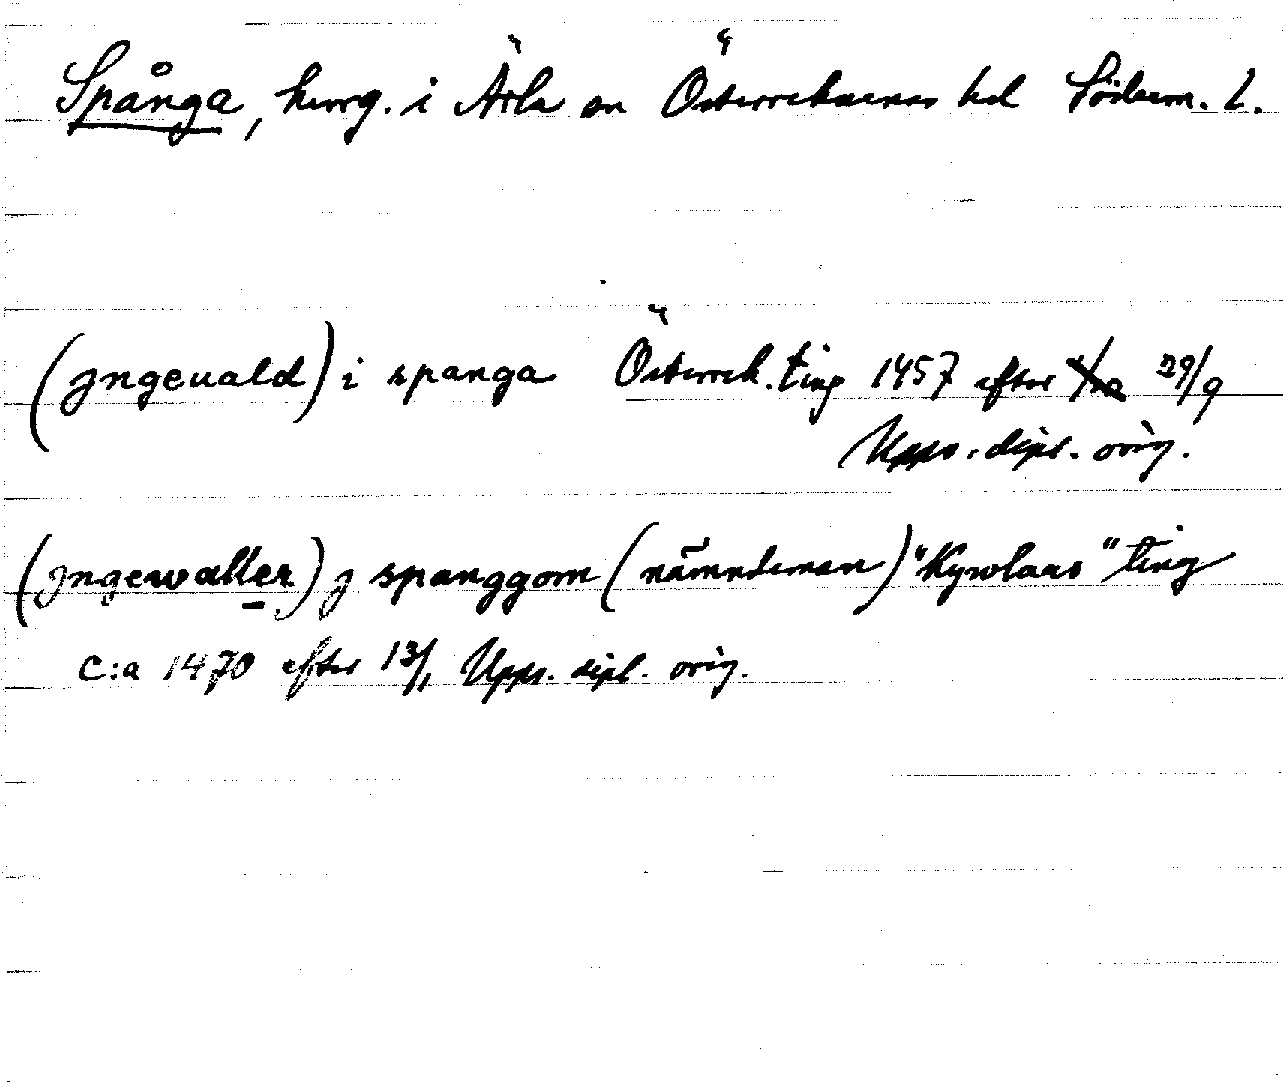 Spånga, herrg. i Ärla sn Österrekarnes hd Söderm. L.
(Jngeuald) i spanga Österrek. ting 1457 efter 29/9
Upps. dipl. orig.
(Jngewaller) j spanggom (nämndeman) "Kyrolaas" ting
C:a 1470 efter 13/1 Upps. dipl. orig.